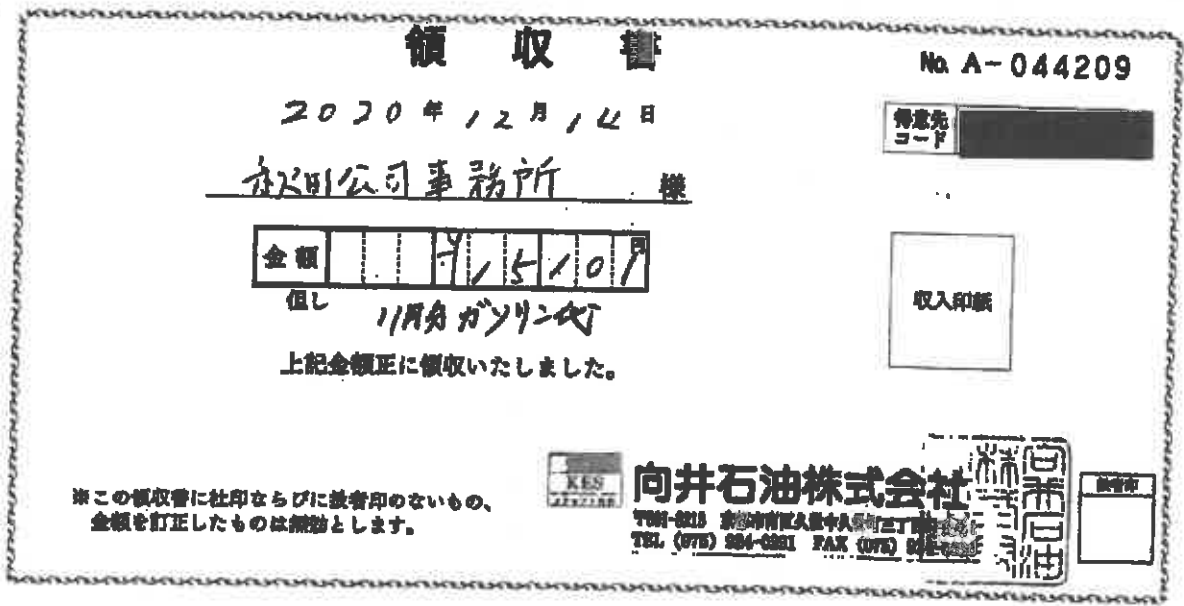 領収書
No. A-044209
2020年12月14日
得意先
コード
秋田公司事務所 様
金額 ¥15101円
但し 11月分ガソリン代
上記金額正に領収いたしました。
収入印紙
※この領収書に社印ならびに扱者印のないもの、
金額を訂正したものは無効とします。
KES
向井石油株式会社
京都市南区久世中久
TEL (075) FAX (075)
扱者印